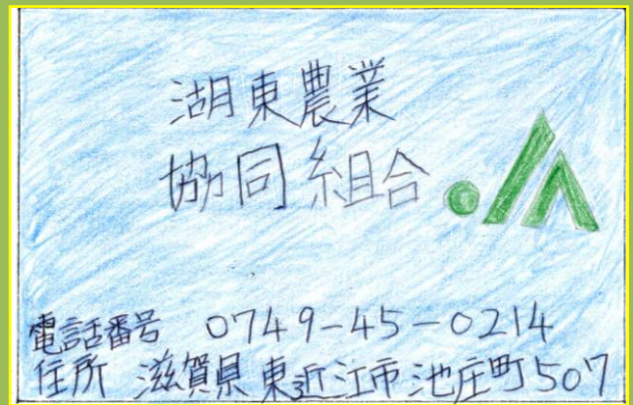 湖東農業
協同組合 JA
電話番号 0749-45-0214
住所 滋賀県東近江市池庄町507